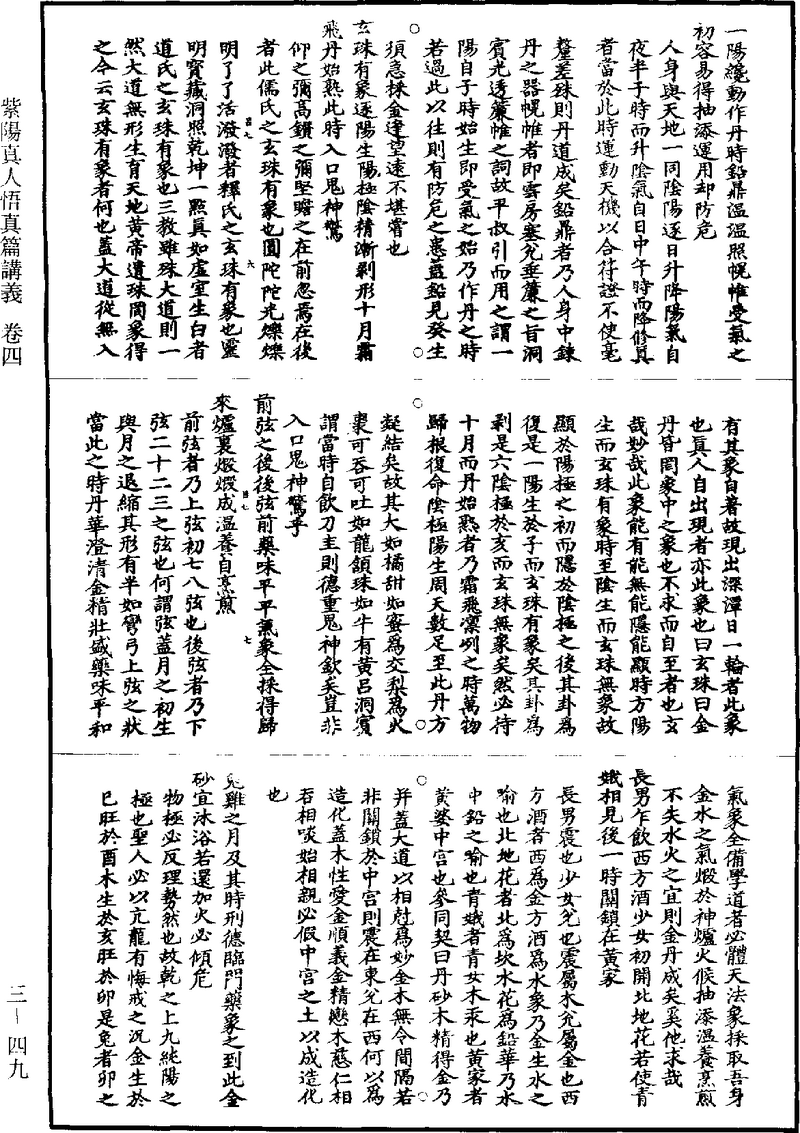 紫陽真人悟真篇講義　卷四
三—四九
一陽纔動作丹時鉛鼎溫溫照幌帷受氣之
初容易得抽添運用却防危
人身與天地一同陰陽逐日升降陽氣自
夜半子時而升陰氣自日中午時而降修真
者當於此時運動天機以合符證不使毫
釐差殊則丹道成矣鉛鼎者乃人身中鍊
丹之器幌帷者即雲房塞兌垂簾之旨洞
賓光透簾帷之詞故平叔引而用之謂一
陽自子時始生即受氣之始乃作丹之時
若過此以往則有防危之患蓋鉛見癸生
須急採金逢望遠不堪嘗也
玄珠有象逐陽生陽極陰精漸剝形十月霜
飛丹始熟此時入口鬼神驚
仰之彌高鑽之彌堅瞻之在前忽焉在後
者此儒氏之玄珠有象也圓陀陀光爍爍
明了了活潑潑者釋氏之玄珠有象也靈
明寶藏洞照乾坤一點真如虛室生白者
道氏之玄珠有象也三教雖殊大道則一
然大道無形生育天地黃帝遺珠罔象得
之今云玄珠有象者何也蓋大道從無入
有其象自著故現出深潭日一輪者此象
也真人自出現者亦此象也曰玄珠曰金
丹皆罔象中之象也不求而自至者也玄
哉妙哉此象能有能無能隱能顯時方陽
生而玄珠有象時至陰生而玄珠無象故
顯於陽極之初而隱於陰極之後其卦為
復是一陽生於子而玄珠有象矣其卦為
剝是六陰極於亥而玄珠無象矣然必待
十月而丹始熟者乃霜飛凜冽之時萬物
歸根復命陰極陽生周天數足至此丹方
凝結矣故其大如橘甜如蜜為交梨為火
棗可吞可吐如龍頷珠如牛有黃呂洞賓
謂當時自飲刀圭則德重鬼神欽矣豈非
入口鬼神驚乎
前弦之後後弦前藥味平平氣象全採得歸
來爐裏煆煆成溫養自烹煎
前弦者乃上弦初七八弦也後弦者乃下
弦二十二三之弦也何謂弦蓋月之初生
與月之退縮其形有半如彎弓上弦之狀
當此之時丹華澄清金精壯盛藥味平和
氣象全備學道者必體天法象採取吾身
金水之氣煆於神爐火候抽添溫養烹煎
不失水火之宜則金丹成矣奚他求哉
長男乍飲西方酒少女初開北地花若使青
娥相見後一時關鎖在黃家
長男震也少女兌也震屬木兌屬金也西
方酒者西為金方酒為水象乃金生水之
喻也北地花者北為坎水花為鉛華乃水
中鉛之喻也青娥者青女木汞也黃家者
黃婆中宮也參同契曰丹砂木精得金乃
并蓋大道以相尅為妙金木無令間隔若
非關鎖於中宮則震在東兌在西何以為
造化蓋木性愛金順義金精戀木慈仁相
吞相啖始相親必假中宮之土以成造化
也
兔雞之月及其時刑德臨門藥象之到此金
砂宜沐浴若還加火必傾危
物極必反理勢然也故乾之上九純陽之
極也聖人必以亢龍有悔戒之況金生於
巳旺於酉木生於亥旺於卯是兔者卯之